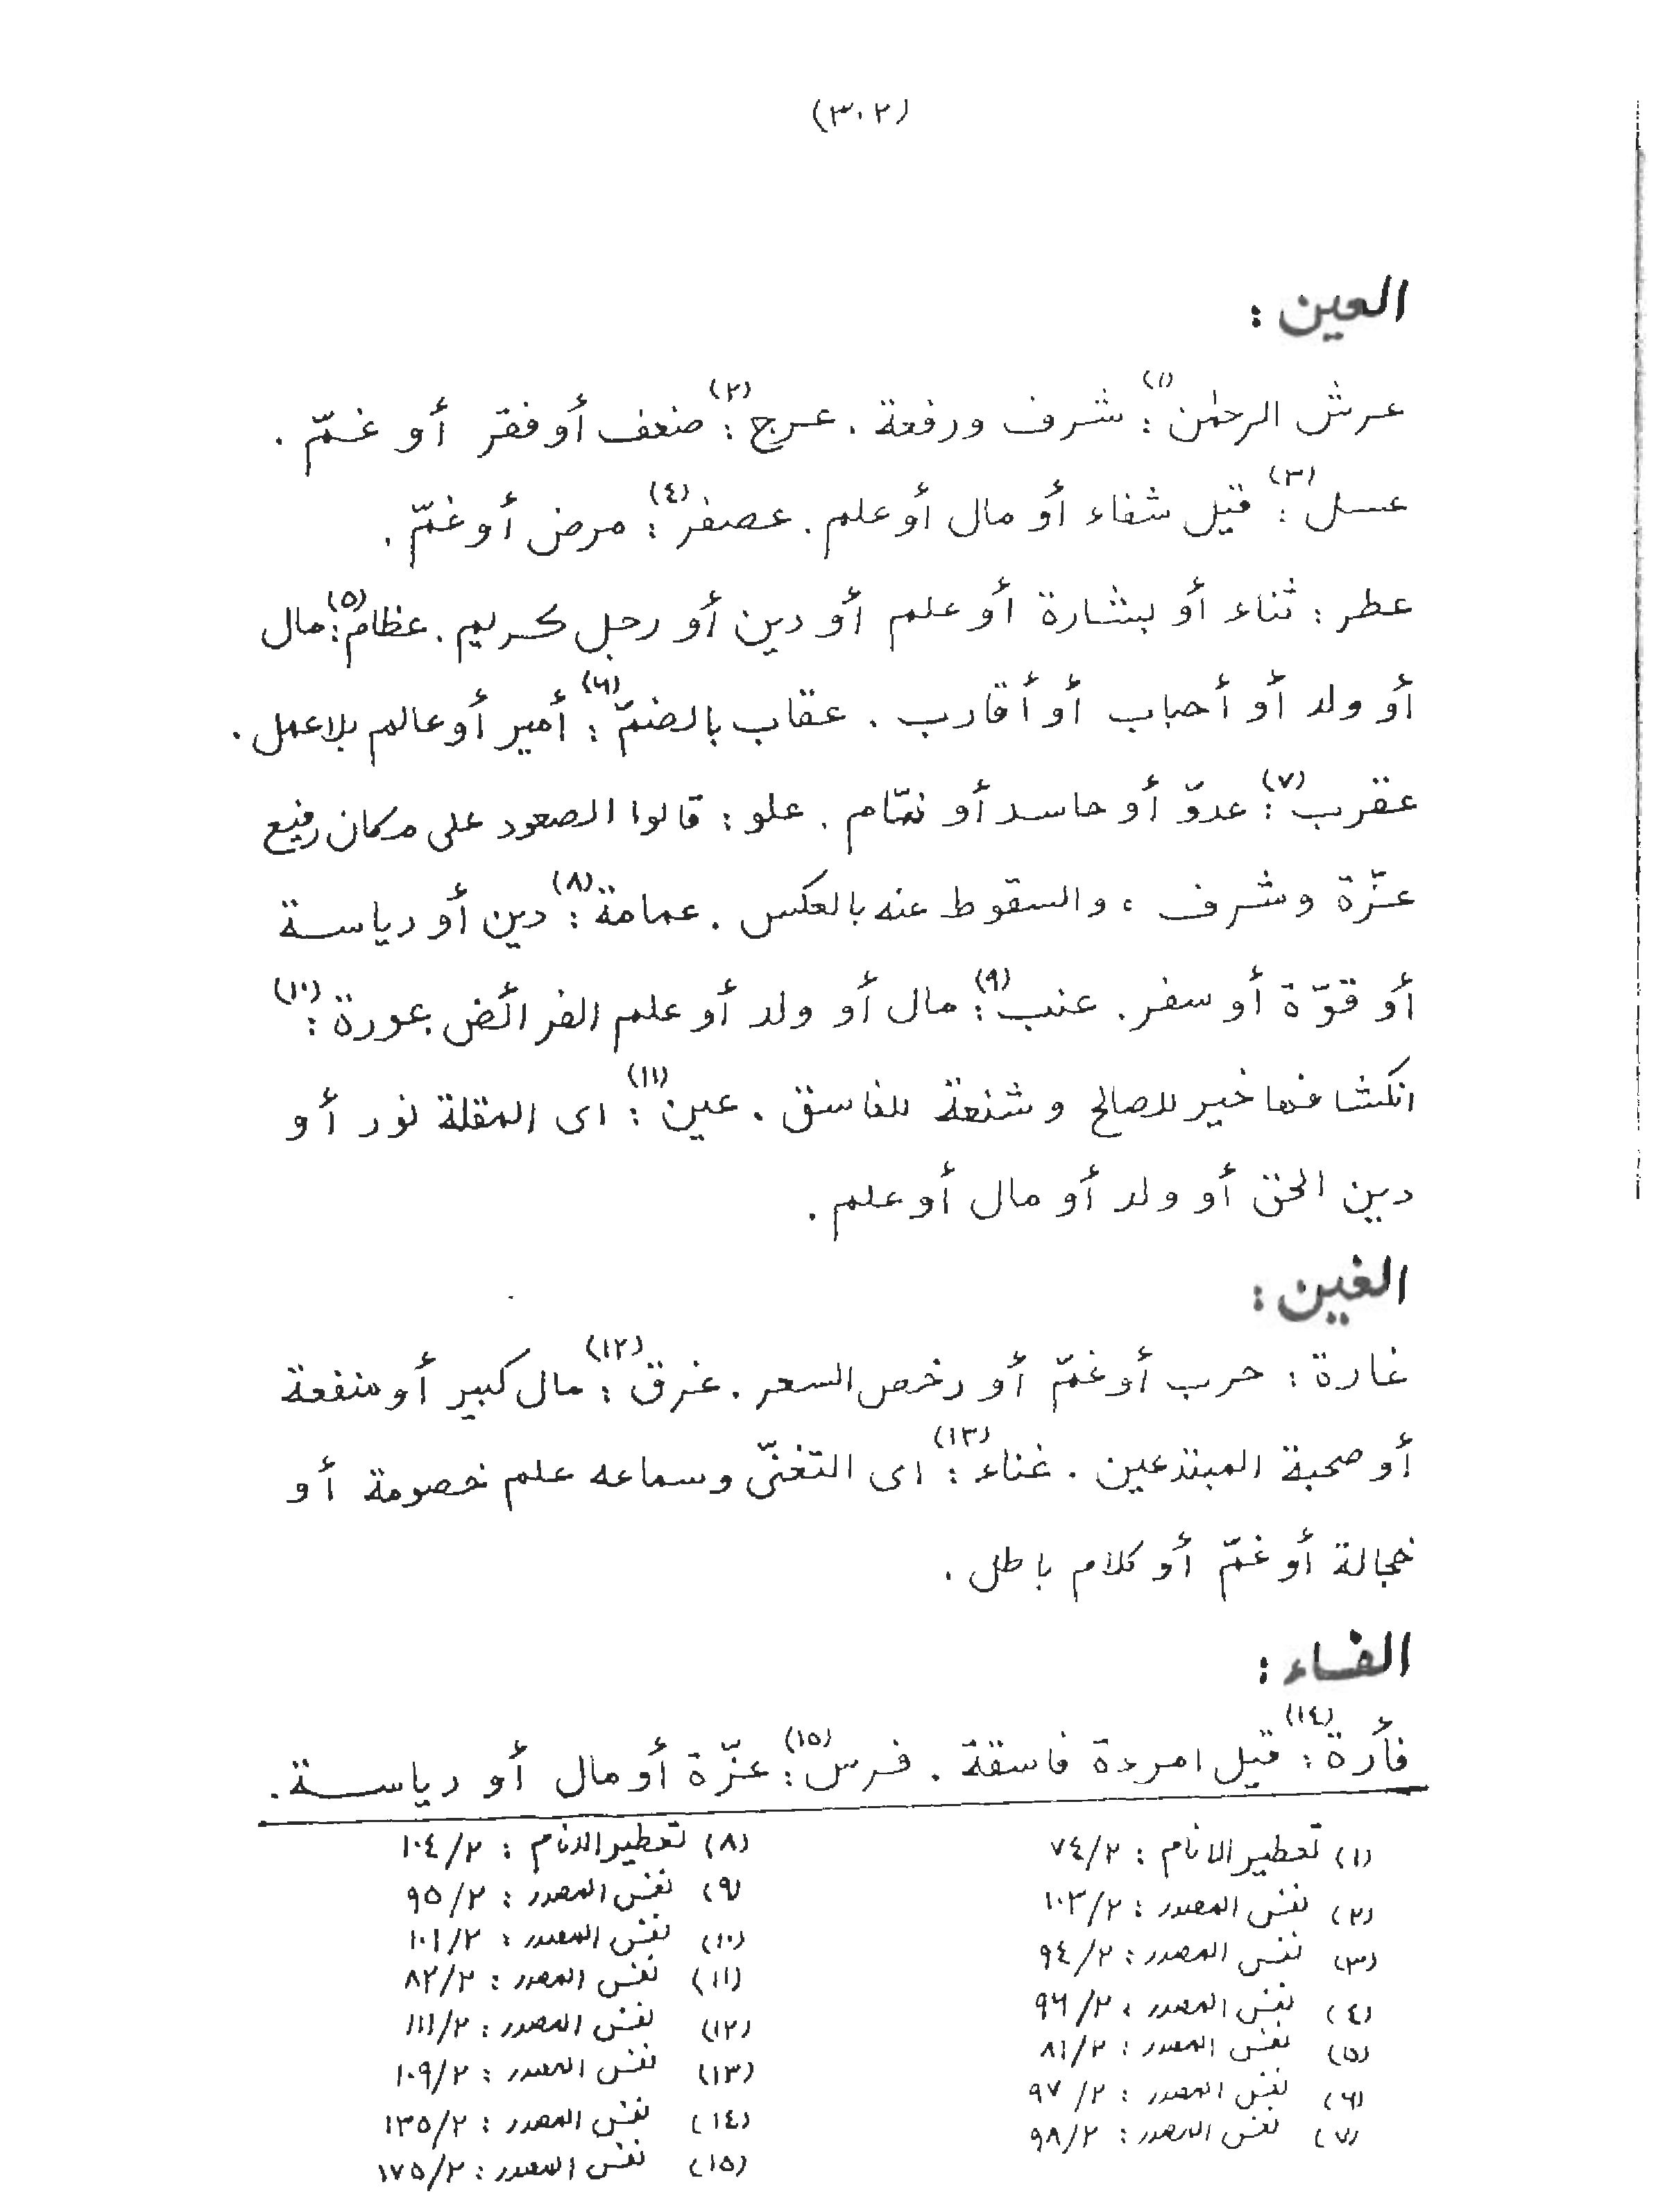 (٣٠٢)
العين :
عرش الرحمٰن(١) : شرف ورفعة . عرج(٢) : ضعف أو فقر أو غمّ .
عسل(٣) : قيل شفاء أو مال أو علم . عصفر(٤) : مرض أو غمّ .
عطر : ثناء أو بشارة أو علم أو دين أو رجل كريم . عظام(٥) : مال
أو ولد أو أحباب أو أقارب . عقاب بالضمّ(٦) : أمير أو عالم بلا عمل .
عقرب(٧) : عدوّ أو حاسد أو نمّام . علو : قالوا الصعود على مكان رفيع
عزّة وشرف ، والسقوط عنه بالعكس . عمامة(٨) : دين أو رياسة
أو قوّة أو سفر . عنب(٩) : مال أو ولد أو علم الفرائض . عورة(١٠) :
انكشافها خير للصالح وشنعة للفاسق . عين(١١) : اى المقلة نور أو
دين الحق أو ولد أو مال أو علم .
الغين :
غارة : حرب أو غمّ أو رخص السعر . غرق(١٢) : مال كبير أو منفعة
أو صحبة المبتدعين . غناء(١٣) : اى التغنّى وسماعه علم خصومة أو
خجالة أو غمّ أو كلام باطل .
الفاء :
فأرة(١٤) : قيل امرءة فاسقة . فرس(١٥) : عزّة أو مال أو رياسة .
(١) تعطير الانام : ٧٤/٢
(٢) نفس المصدر : ١٠٣/٢
(٣) نفس المصدر : ٩٤/٢
(٤) نفس المصدر : ٩٦/٢
(٥) نفس المصدر : ٨١/٢
(٦) نفس المصدر : ٩٧/٢
(٧) نفس المصدر : ٩٨/٢
(٨) تعطير الانام : ١٠٤/٢
(٩) نفس المصدر : ٩٥/٢
(١٠) نفس المصدر : ١٠١/٢
(١١) نفس المصدر : ٨٢/٢
(١٢) نفس المصدر : ١١١/٢
(١٣) نفس المصدر : ١٠٩/٢
(١٤) نفس المصدر : ١٣٥/٢
(١٥) نفس المصدر : ١٧٥/٢